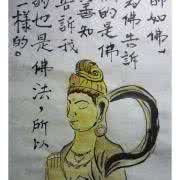 師如佛」
為佛告訴
的是佛
善知
告訴我
的也是佛法，所以
一樣的。